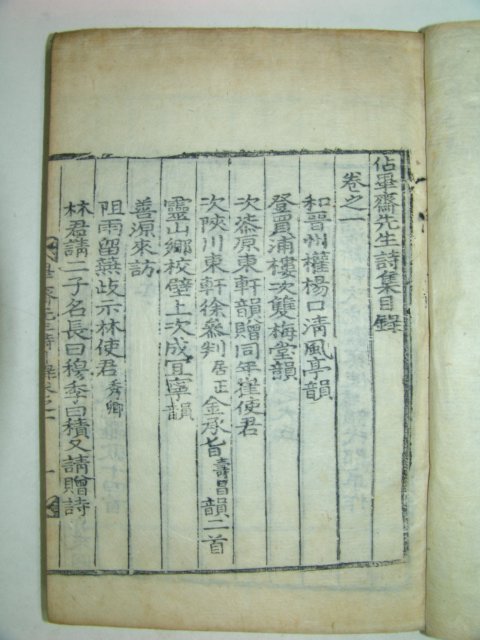 佔畢齋先生詩集目錄
卷之一
和晉州權楊口淸風亭韻
登買浦樓次雙梅堂韻
次漆原東軒韻贈同年崔使君
次陜川東軒徐叅判居正金承旨壽昌韻二首
靈山鄕校壁上次成宜寧韻
善源來訪
阻雨留蕪歧示林使君秀卿
林君請二子名長曰穆季曰積又請贈詩